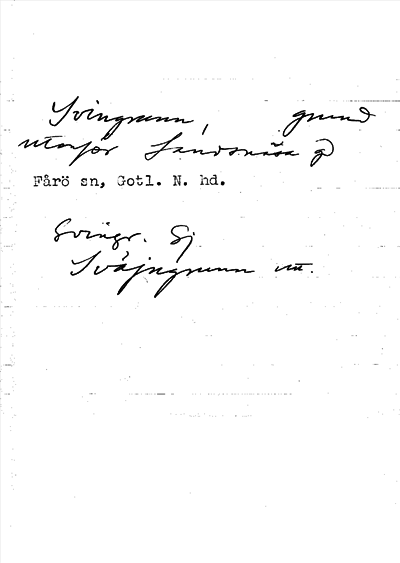 Svingrunn, grund
utanför Landsnäsa
Fårö sn, Gotl. N. hd.
Svingr. Sj
Sväjngrunn utt.